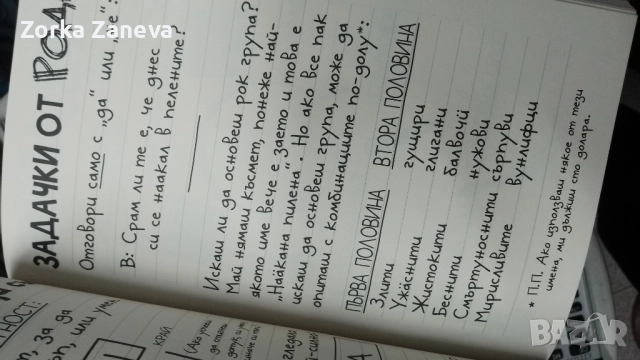 Zorka Zaneva
ЗАДАЧКИ ОТ РОД
Отговори само с „да" или „не":
В: Срам ли те е, че днес
си се наакал в пелените?
Искаш ли да основеш рок група?
Май нямаш късмет, понеже най-
якото име вече е заето и това е
„Наакана пилена". Но ако все пак
искаш да основеш група, може да
опиташ с комбинациите по-долу*:
ПЪРВА ПОЛОВИНА ВТОРА ПОЛОВИНА
Злити гущири
Ужаснити глигани
Жистокити балвочи
Беснити нужови
Смъртуноснити сърпуви
Мирисливите вунлифци
* П.П. Ако използваш някое от тези
имена, ми дължиш сто долара.
НОСТ:
КРАЙ
bazar.bg